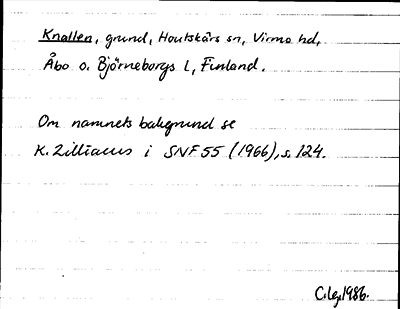 Knallen, grund, Houtskärs sn, Virmo hd,
Åbo o. Björneborgs l, Finland.
Om namnets bakgrund se
K. Zilliacus i SNF 55 (1966), s. 124.
1986.